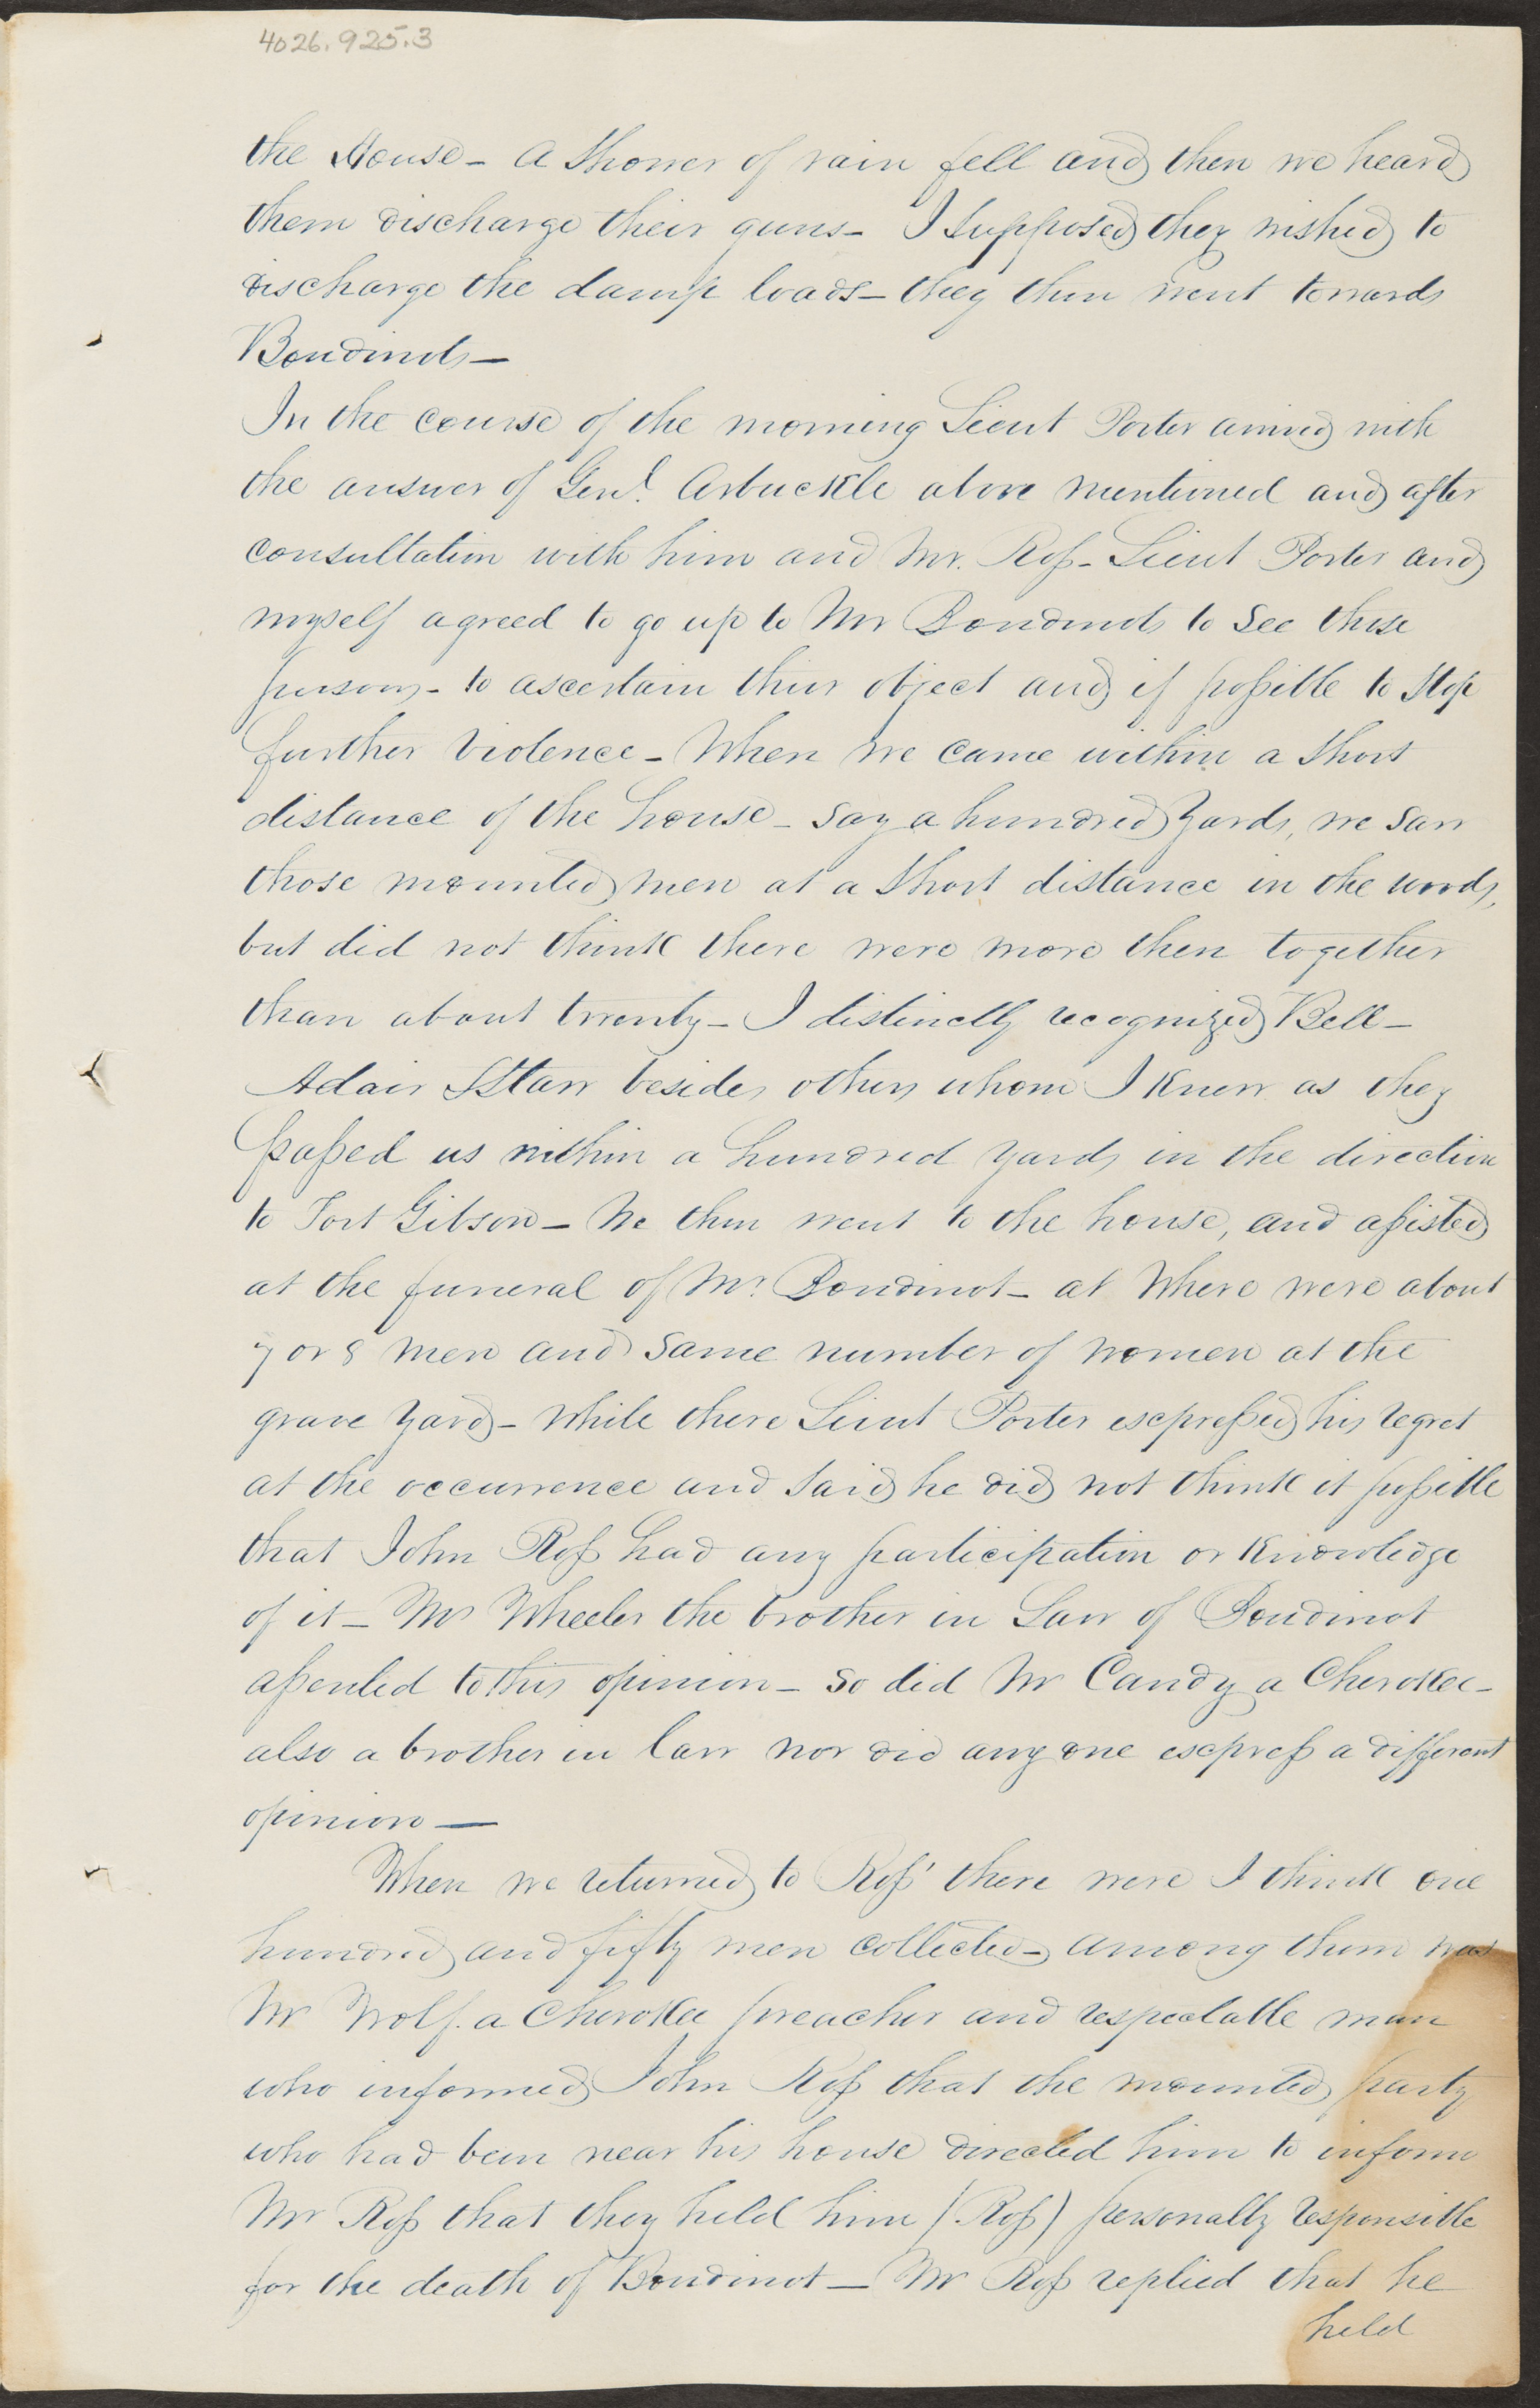 4026.925.3
the House – A Shower of rain fell and then we heard
them discharge their guns – I Supposed they wished to
discharge the damp loads – they then went towards
Boudinots –
In the course of the morning Lieut Porter arrived with
the answer of Genl. Arbuckle above mentioned and after
consultation with him and Mr. Roſs – Lieut Porter and
myself agreed to go up to Mr Boudinots to see those
persons – to ascertain their object and if poſsible to Stop
further violence – When we came within a Short
distance of the house – say a hundred yards, we saw
those mounted men at a Short distance in the woods,
but did not think there were more then together
than about twenty – I distinctly recognized Bell –
Adair & Starr besides others whom I knew as they
paſsed us within a hundred yards in the direction
to Fort Gibson – We then went to the house, and aſsisted
at the funeral of Mr. Boudinot – at Where were about
7 or 8 men and same number of women at the
grave yard – While there Lieut Porter expreſsed his regret
at the occurrence and Said he did not think it poſsible
that John Roſs had any participation or knowledge
of it – Mr Wheeler the brother in Law of Boudinot
aſsented to this opinion – so did Mr Candy a Cherokee –
also a brother in law nor did any one expreſs a different
opinion –
When we returned to Roſs' there were I think one
hundred and fifty men collected – among them was
Mr Wolf. a Cherokee preacher and respectable man
who informed John Roſs that the mounted party
who had been near his house directed him to inform
Mr Roſs that they held him (Roſs) personally responsible
for the death of Boudinot – Mr Roſs replied that he
held